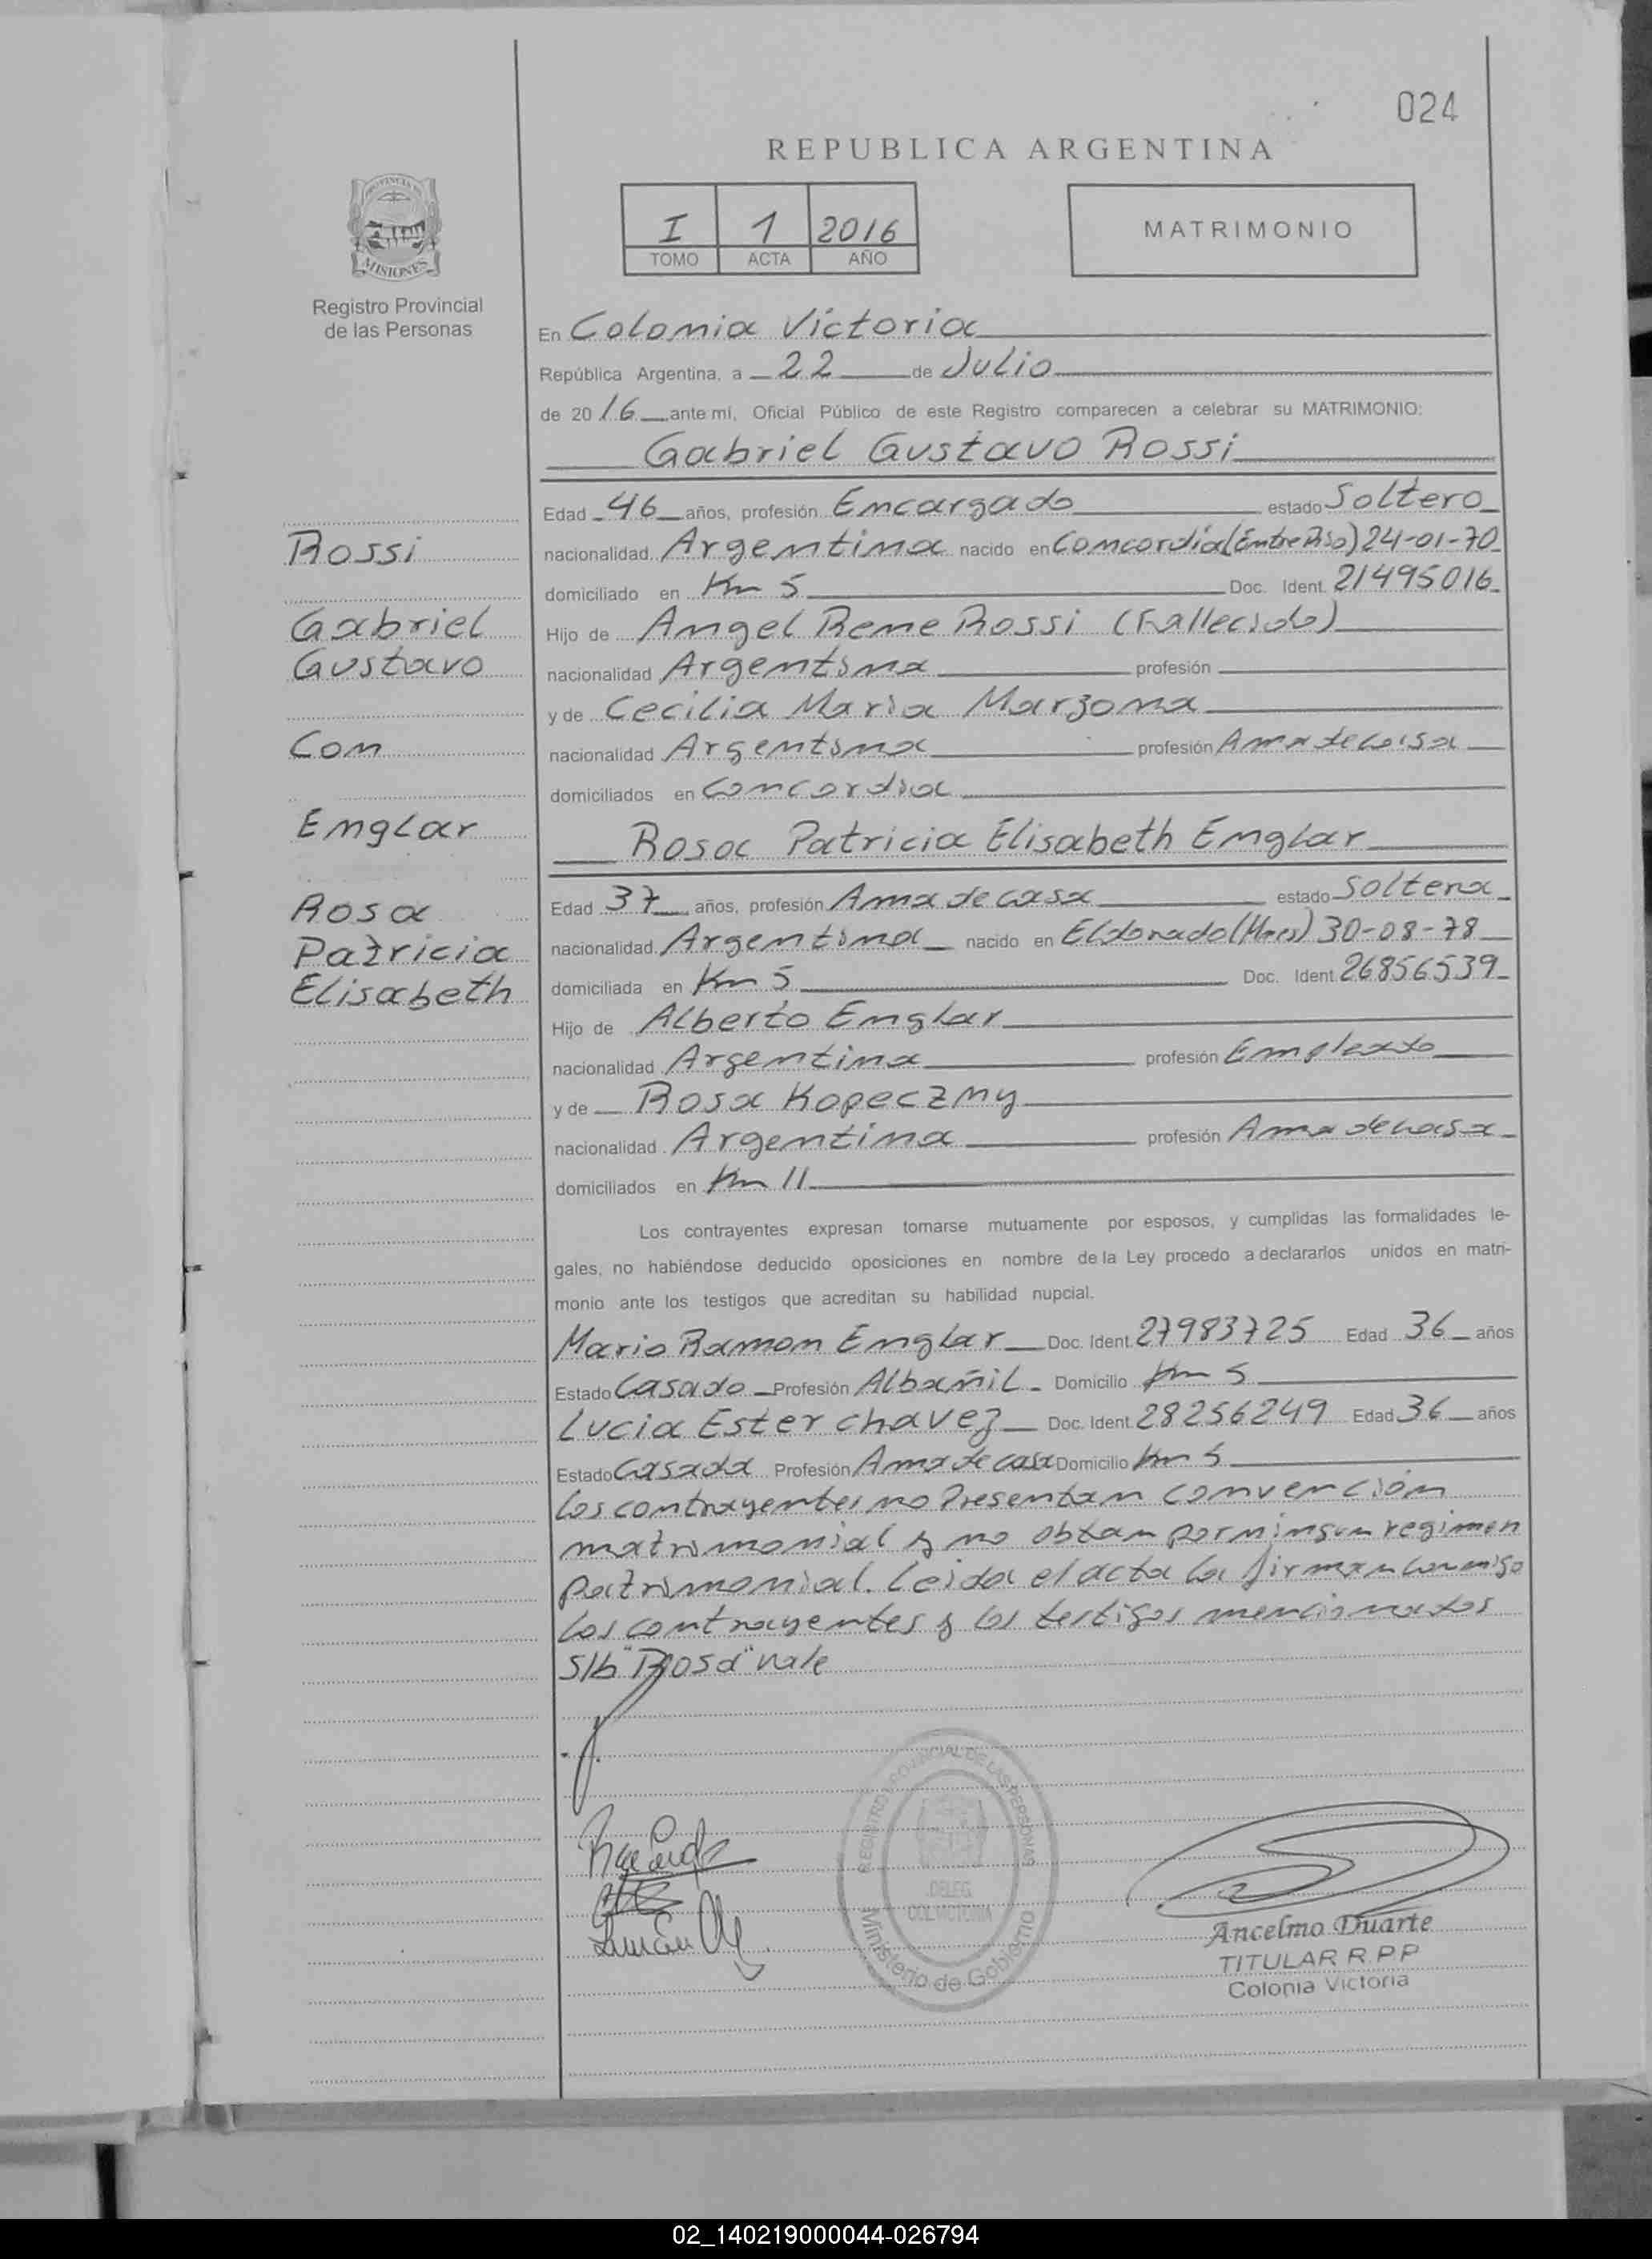 024
REPUBLICA ARGENTINA
I 1 2016
TOMO ACTA AÑO
MATRIMONIO
PROVINCIA DE
MISIONES
Registro Provincial
de las Personas
En Colonia Victoria
República Argentina, a 22 de Julio
de 2016 ante mí, Oficial Público de este Registro comparecen a celebrar su MATRIMONIO:
Gabriel Gustavo Rossi
Edad 46 años, profesión Encargado estado Soltero
Rossi
nacionalidad Argentina nacido en Concordia (Entre Rios) 24-01-70
domiciliado en Km 5 Doc. Ident. 21495016
Gabriel
Hijo de Angel Rene Rossi (Fallecido)
Gustavo
nacionalidad Argentina profesión
y de Cecilia Maria Marzona
Con
nacionalidad Argentina profesión Ama de casa
domiciliados en Concordia
Englar
Rosa Patricia Elisabeth Englar
Edad 37 años, profesión Ama de casa estado Soltera
Rosa
Patricia
nacionalidad Argentina nacido en Eldorado (Mnes) 30-08-78
Elisabeth
domiciliada en Km 5 Doc. Ident. 26856539
Hijo de Alberto Englar
nacionalidad Argentina profesión Empleado
y de Rosa Kopeczny
nacionalidad Argentina profesión Ama de casa
domiciliados en Km 11
Los contrayentes expresan tomarse mutuamente por esposos, y cumplidas las formalidades le-
gales, no habiéndose deducido oposiciones en nombre de la Ley procedo a declararlos unidos en matri-
monio ante los testigos que acreditan su habilidad nupcial.
Mario Ramon Englar Doc. Ident. 27983725 Edad 36 años
Estado Casado Profesión Albañil Domicilio Km 5
Lucia Ester chavez Doc. Ident. 28256249 Edad 36 años
Estado Casada Profesión Ama de casa Domicilio Km 5
los contrayentes no Presentan convención
matrimonial y no obtan por ningun regimen
patrimonial. Leida el acta la firman conmigo
los contrayentes y los testigos mencionados
S/b "Rosa" vale
REGISTRO PROVINCIAL DE LAS PERSONAS
DELEG.
COL. VICTORIA
Ministerio de Gobierno
Ancelmo Duarte
TITULAR R.P.P
Colonia Victoria
02_140219000044-026794